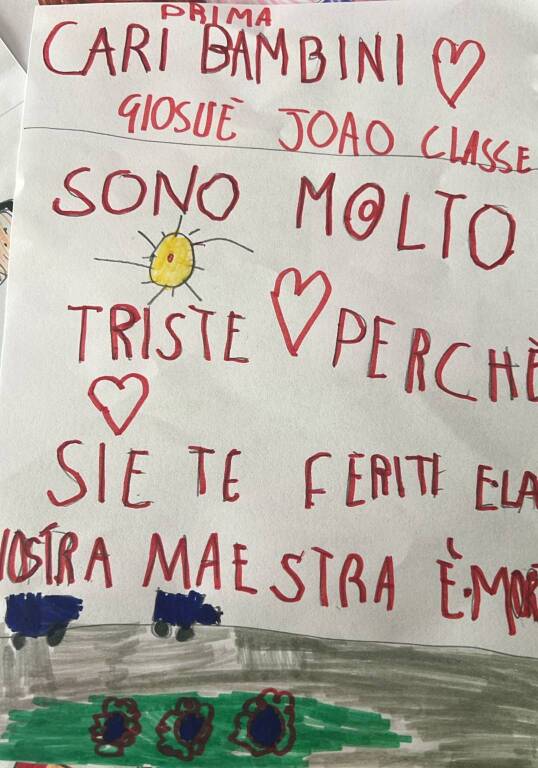 PRIMA
CARI BAMBINI
GIOSUÈ JOAO CLASSE
SONO MOLTO
TRISTE PERCHÈ
SIETE FERITI E LA
NOSTRA MAESTRA È MOR